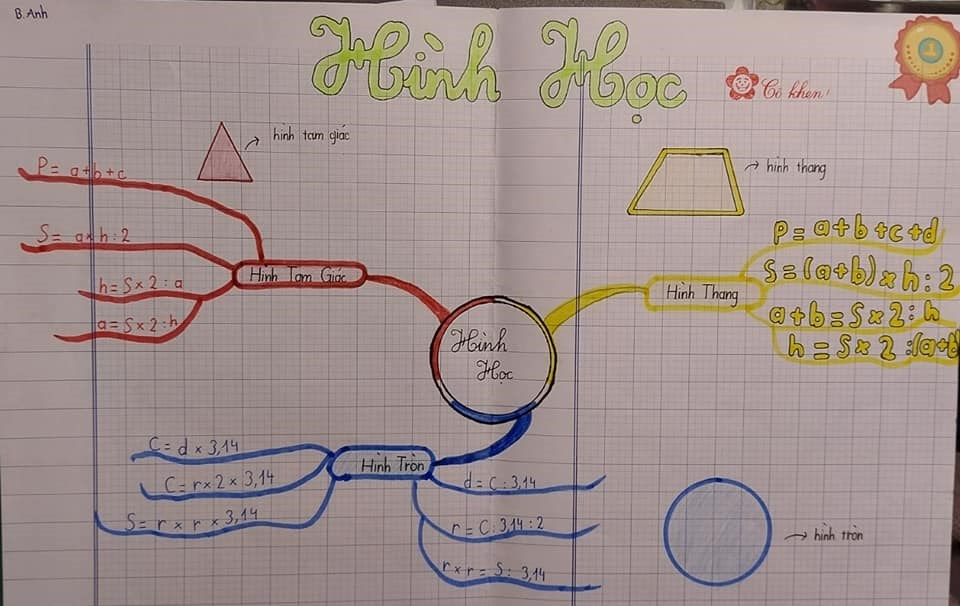 B. Anh
Hình Học
1
Cô khen!
hình tam giác
P = a+b+c
S = a×h:2
h = S×2:a
a = S×2:h
Hình Tam Giác
hình thang
Hình Thang
P = a+b+c+d
S = (a+b)×h:2
a+b = S×2:h
h = S×2:(a+b
Hình
Học
Hình Tròn
C = d×3,14
C = r×2×3,14
S = r×r×3,14
d = C:3,14
r = C:3,14:2
r×r = S:3,14
hình tròn